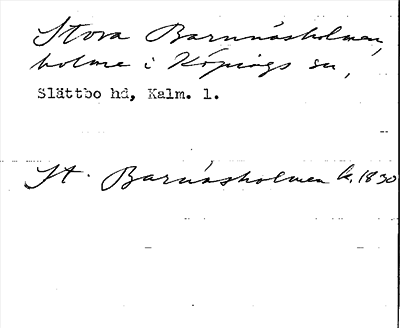 Stora Barnåsholmen,
holme i Köpings sn,
Slättbo hd, Kalm. l.
St. Barnåsholmen k. 1830